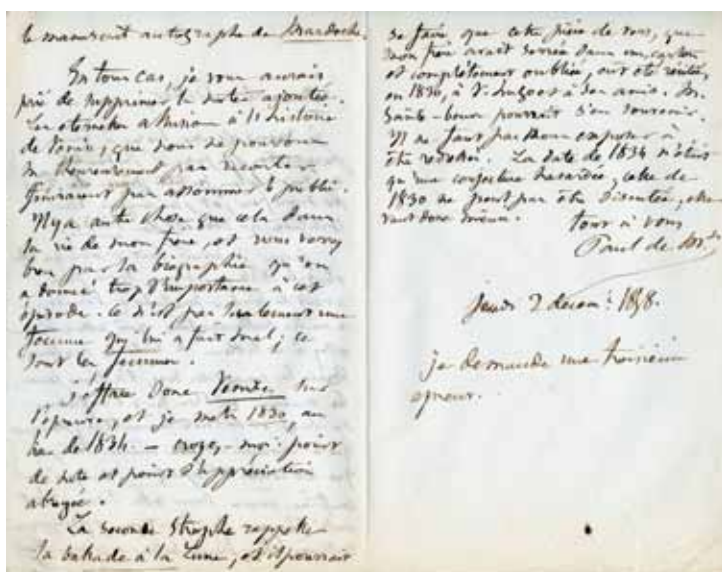 le manuscrit autographe de Mardoche.
En tous cas, je vous aurais
prié de supprimer la note ajoutée.
Les éternelles allusions à l'histoire
de Venise, que nous ne pouvons
malheureusement pas raconter
finiraient par assommer le public.
Il y a autre chose que cela dans
la vie de mon frère, et vous verrez
bien par la biographie qu'on
a donné trop d'importance à cet
épisode. Ce n'est pas seulement une
femme qui lui a fait mal; ce
sont les femmes.
J'efface donc Venise sur
l'épreuve, et je mets 1830, au
lieu de 1834. — croyez-moi: point
de note et point d'appréciation
abrégée.
La seconde strophe rappelle
la ballade à la Lune, et il pourrait
se faire que cette pièce de vers, que
mon frère avait serrée dans un carton
et complètement oubliée, eut été récitée,
en 1830, à V. hugo et à ses amis. M.
Sainte-beuve pourrait s'en souvenir.
Il ne faut pas nous exposer à
être redressés. La date de 1834 n'était
qu'une conjecture hasardée, celle de
1830 ne peut pas être discutée, elle
vaut donc mieux.
tout à vous
Paul de M.
jeudi 2 décem.
je demande une troisième
épreuve.